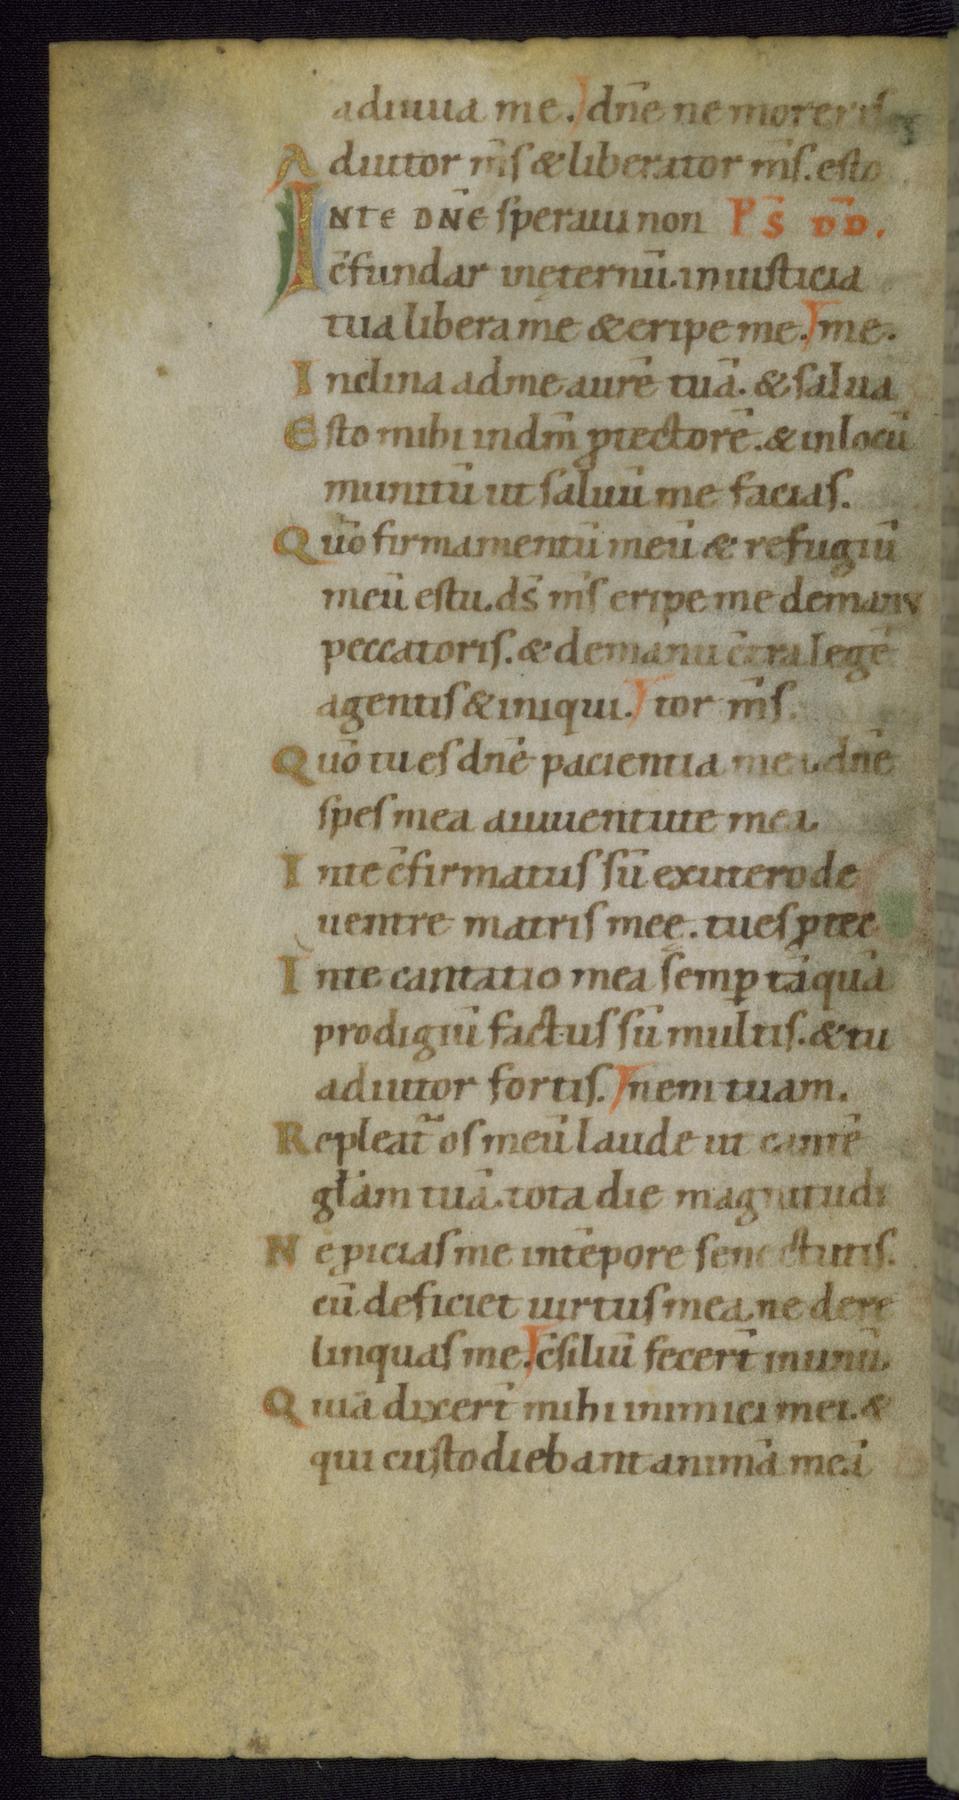 adiuua me. dn̄e ne moreris
Adiutor m̄s & liberator m̄s. esto
INTE DN̄E speraui non PS̄ DD̄.
c̄fundar inęternū. iniusticia
tua libera me & eripe me. me.
Inclina adme aurē tuā. & salua
Esto mihi indm̄ ꝓtectorē. & inlocū
munitū ut saluū me facias.
Qūo firmamentū meū & refugiū
meū estu. ds̄ m̄s eripe me demanu
peccatoris. & demanu c̄tra legē
agentis & iniqui. tor m̄s.
Qūo tu es dn̄e pacientia mea. dn̄e
spes mea aiuuentute mea.
Inte c̄firmatus sū exutero de
uentre matris meę. tu es ꝓtec
Inte cantatio mea semꝑ tāquā
prodigiū factus sū multis. & tu
adiutor fortis. nem tuam.
Repleat̄ os meū laude ut cantē
gl̄am tuā. tota die magnitudi
Ne ꝓicias me intēpore senectutis.
cū deficiet uirtus mea. ne dere
linquas me. c̄siliū fecer̄t inunū.
Quia dixer̄t mihi inimici mei. &
qui custodiebant animā meā